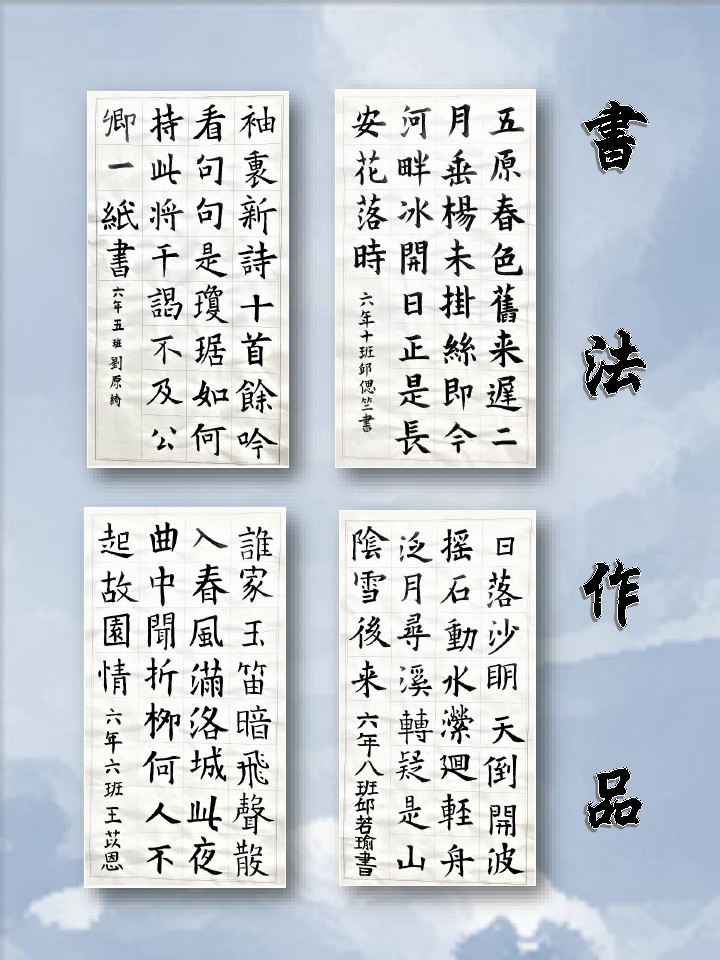 書法作品
五原春色舊来遲二
月垂楊未掛絲即今
河畔冰開日正是長
安花落時
六年十班邱偲竺書
袖裏新詩十首餘吟
看句句是瓊琚如何
持此将干謁不及公
卿一紙書
六年五班劉原綺
日落沙明天倒開波
摇石動水瀠廻輕舟
泛月尋溪轉疑是山
陰雪後来
六年八班邱若瑜書
誰家玉笛暗飛聲散
入春風滿洛城此夜
曲中聞折柳何人不
起故園情
六年六班王苡恩